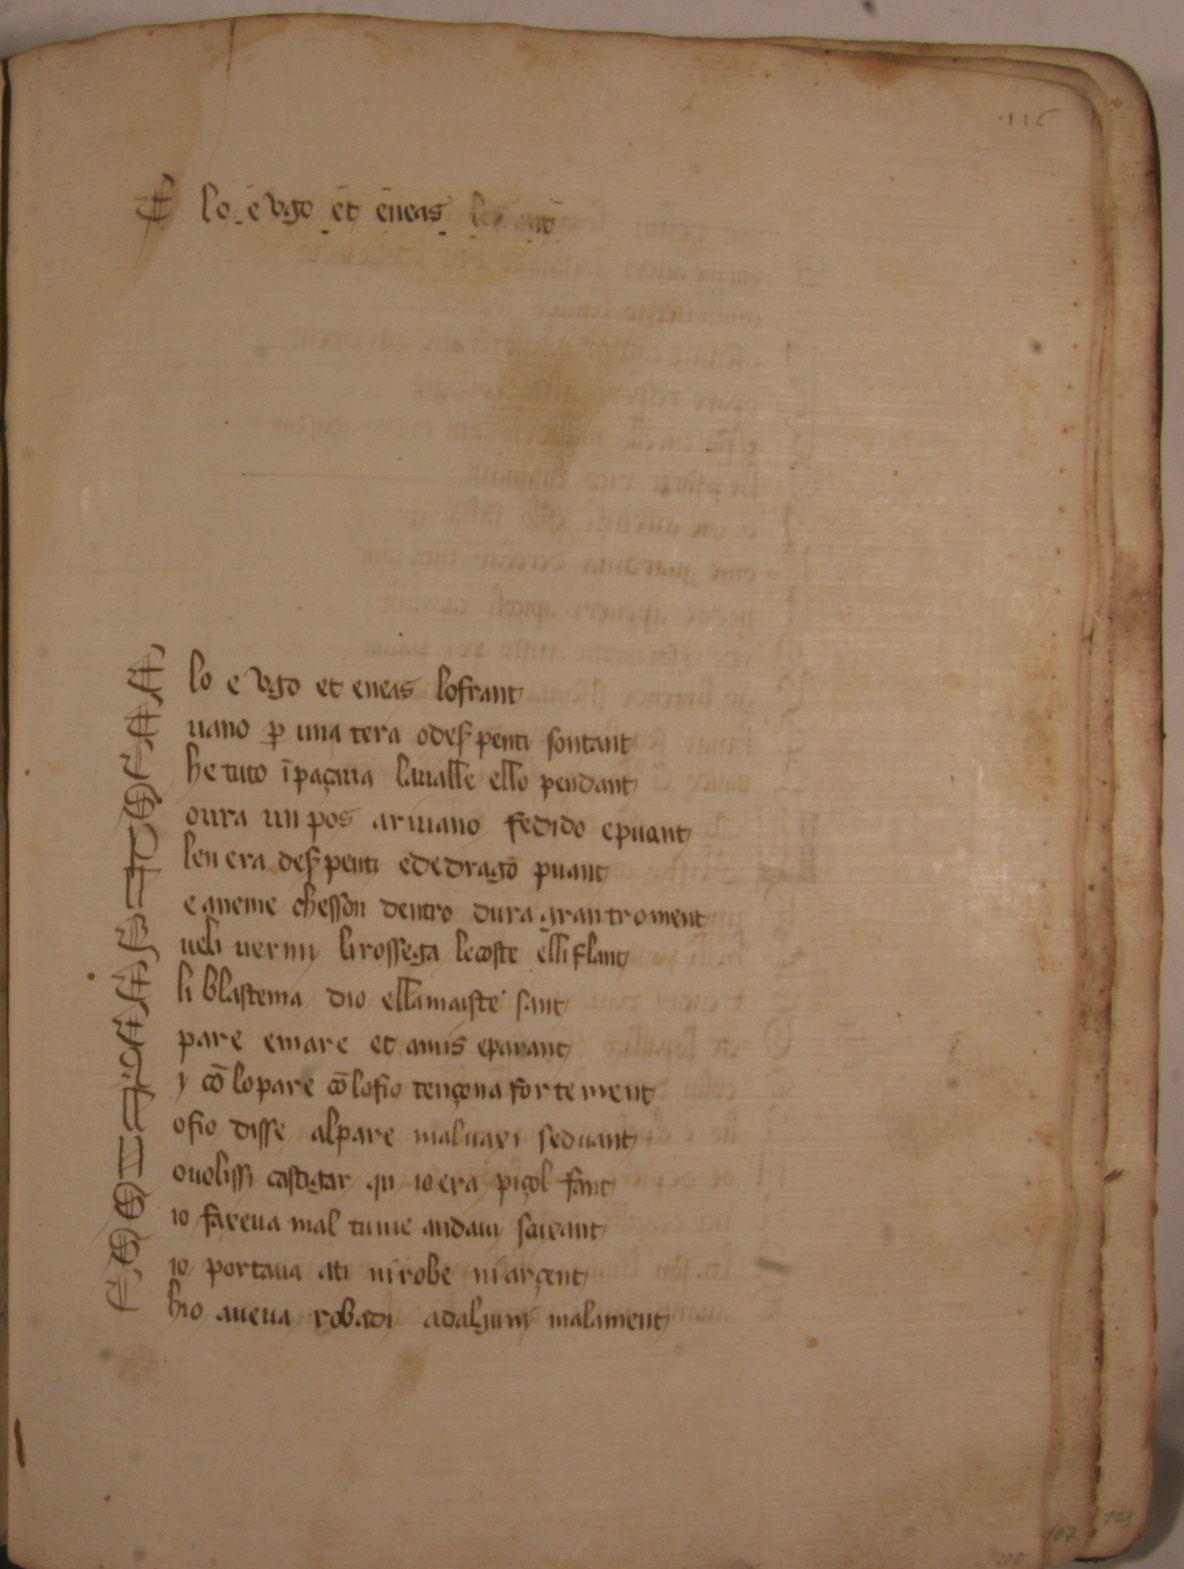 ·116
E lo e vgo et eneas lo frant
E lo e vgo et eneas lofrant
E uano p una tera odes’penti sontant
C he tuto īpaçaua lauałłe ełło pendant
O oura un pos ariuano fedido epuant
P len era des’penti ededragō puant
E eaneme chesson dentro dura grantroment
G ueli uermy lirossega lecoste ełłiflanc
E li blastema dio ełłamaiste sant
E pare emare et amis eparant
y cō lopare cō lofio tençona fortement
L ofio disse alpare maluaxi seduant
ouolissi castigar qn ioera piçol fant
O io faxeua mal tume andaui saixant
O io portaua ati ni robe ni arçent
C hio aueua robadi adalguni malament